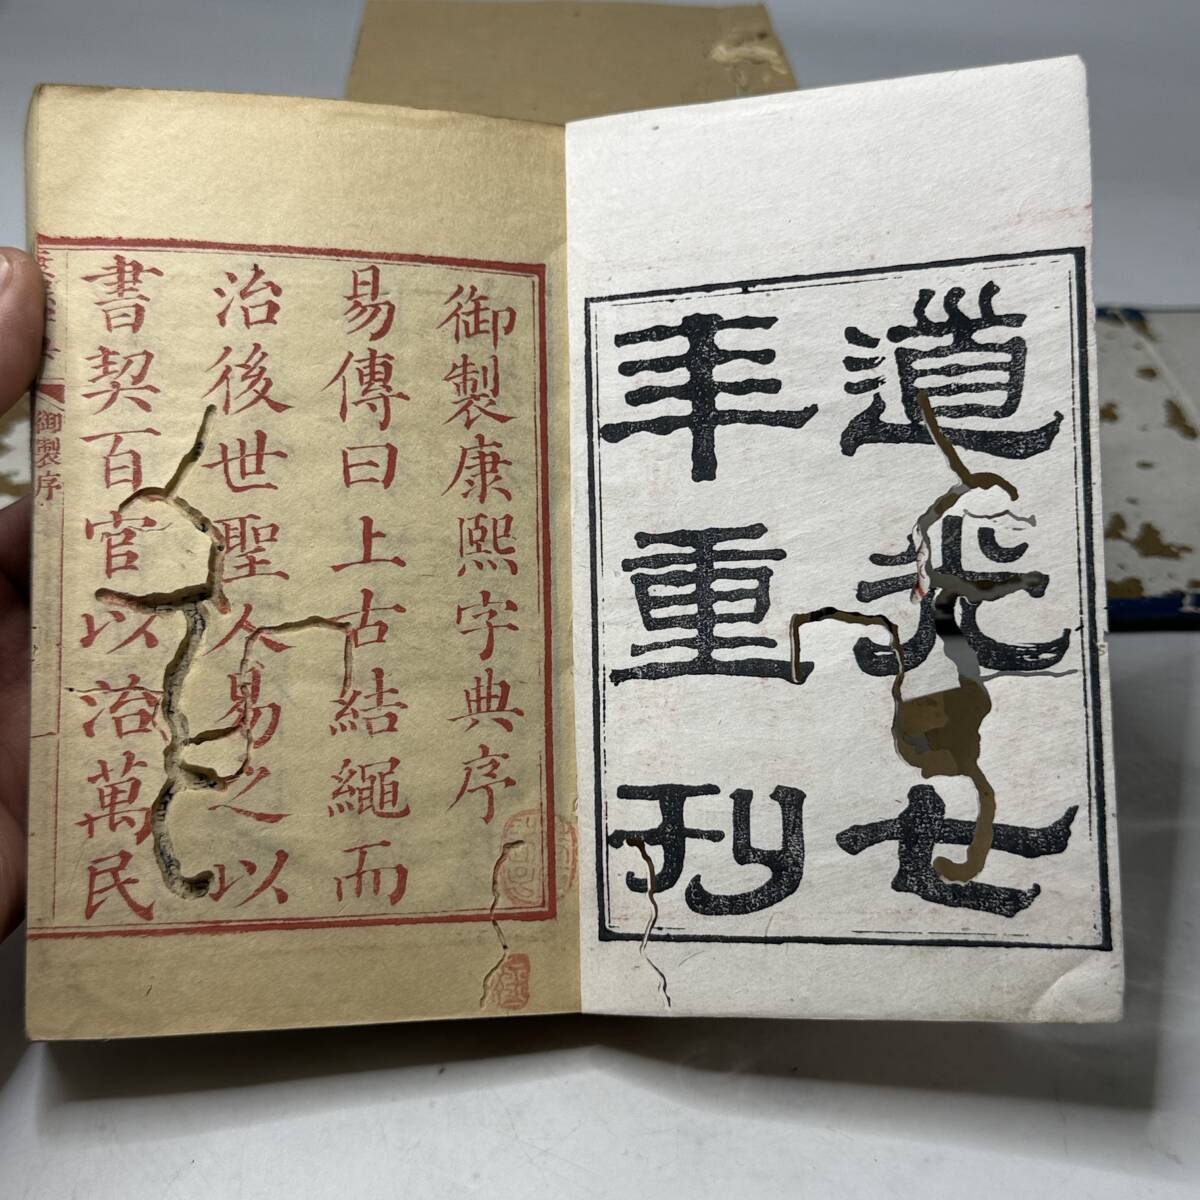 道光七
年重刊
御製康熙字典序
易傳曰上古結繩而
治後世聖人易之以
書契百官以治萬民
御製序